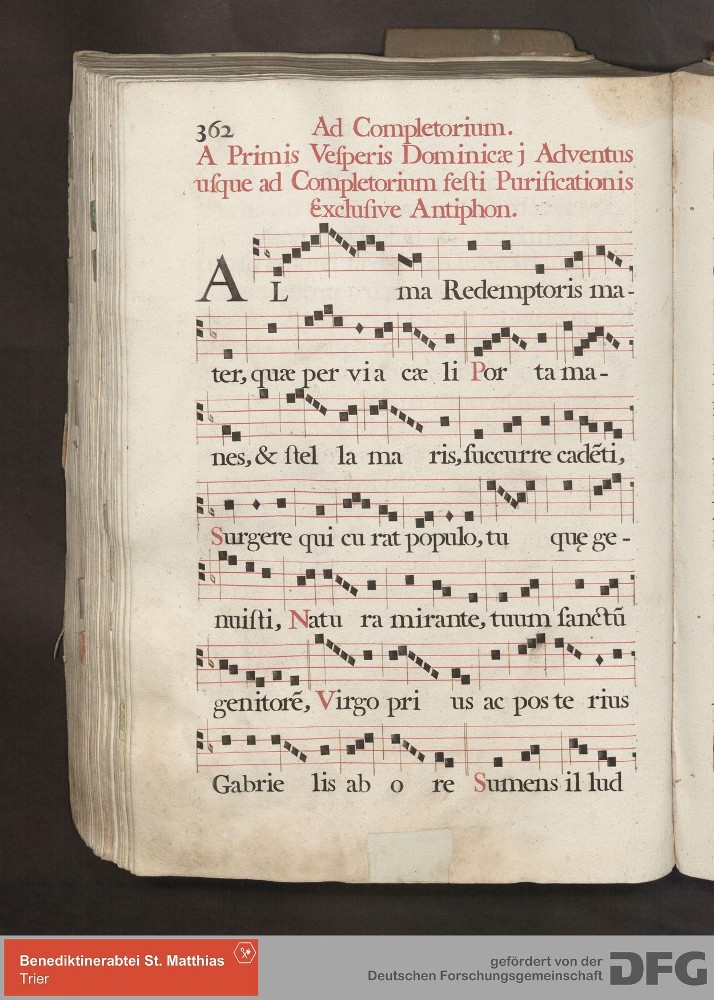 362 Ad Completorium.
A Primis Veſperis Dominicæ j Adventus
uſque ad Completorium feſti Purificationis
Excluſive Antiphon.
AL ma Redemptoris ma-
ter, quæ per via cæ li Por ta ma-
nes, & ſtel la ma ris, ſuccurre cadẽti,
Surgere qui cu rat populo, tu quę ge-
nuiſti, Natu ra mirante, tuum ſanctũ
genitorẽ, Virgo pri us ac pos te rius
Gabrie lis ab o re Sumens il lud
Benediktinerabtei St. Matthias
Trier
gefördert von der
Deutschen Forschungsgemeinschaft DFG